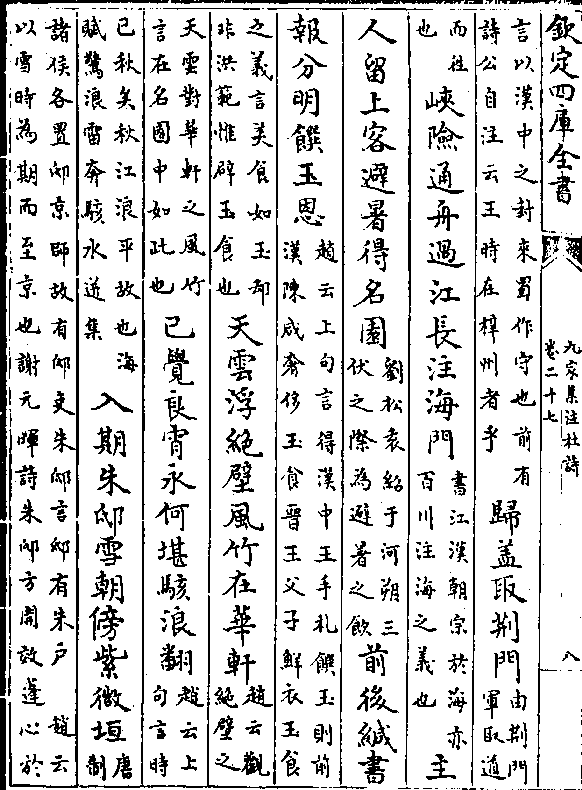 欽定四庫全書
九家集注杜詩
卷二十七
八
言以漢中之封來蜀作守也前有
詩公自注云王時在梓州者乎
歸蓋取荆門
由荆門
軍取道
而往
也
峽險通舟過江長注海門
書江漢朝宗於海亦
百川注海之義也
主
人留上客避暑得名園
劉松袁紹于河朔三
伏之際為避暑之飲
前後緘書
報分明饌玉恩
趙云上句言得漢中王手札饌玉則前
漢陳咸奢侈玉食晉王父子鮮衣玉食
之義言美食如玉却
非洪範惟辟玉食也
天雲浮絶壁風竹在華軒
趙云觀
絶壁之
天雲對華軒之風竹
言在名園中如此也
已覺良宵永何堪駭浪翻
趙云上
句言時
已秋矣秋江浪平故也海
賦驚浪雷奔駭水迸集
入期朱邸雪朝傍紫微垣
唐
制
諸侯各置邸京師故有邸吏朱邸言邸有朱戸 趙云
以雪時為期而至京也謝元暉詩朱邸方開效蓬心於